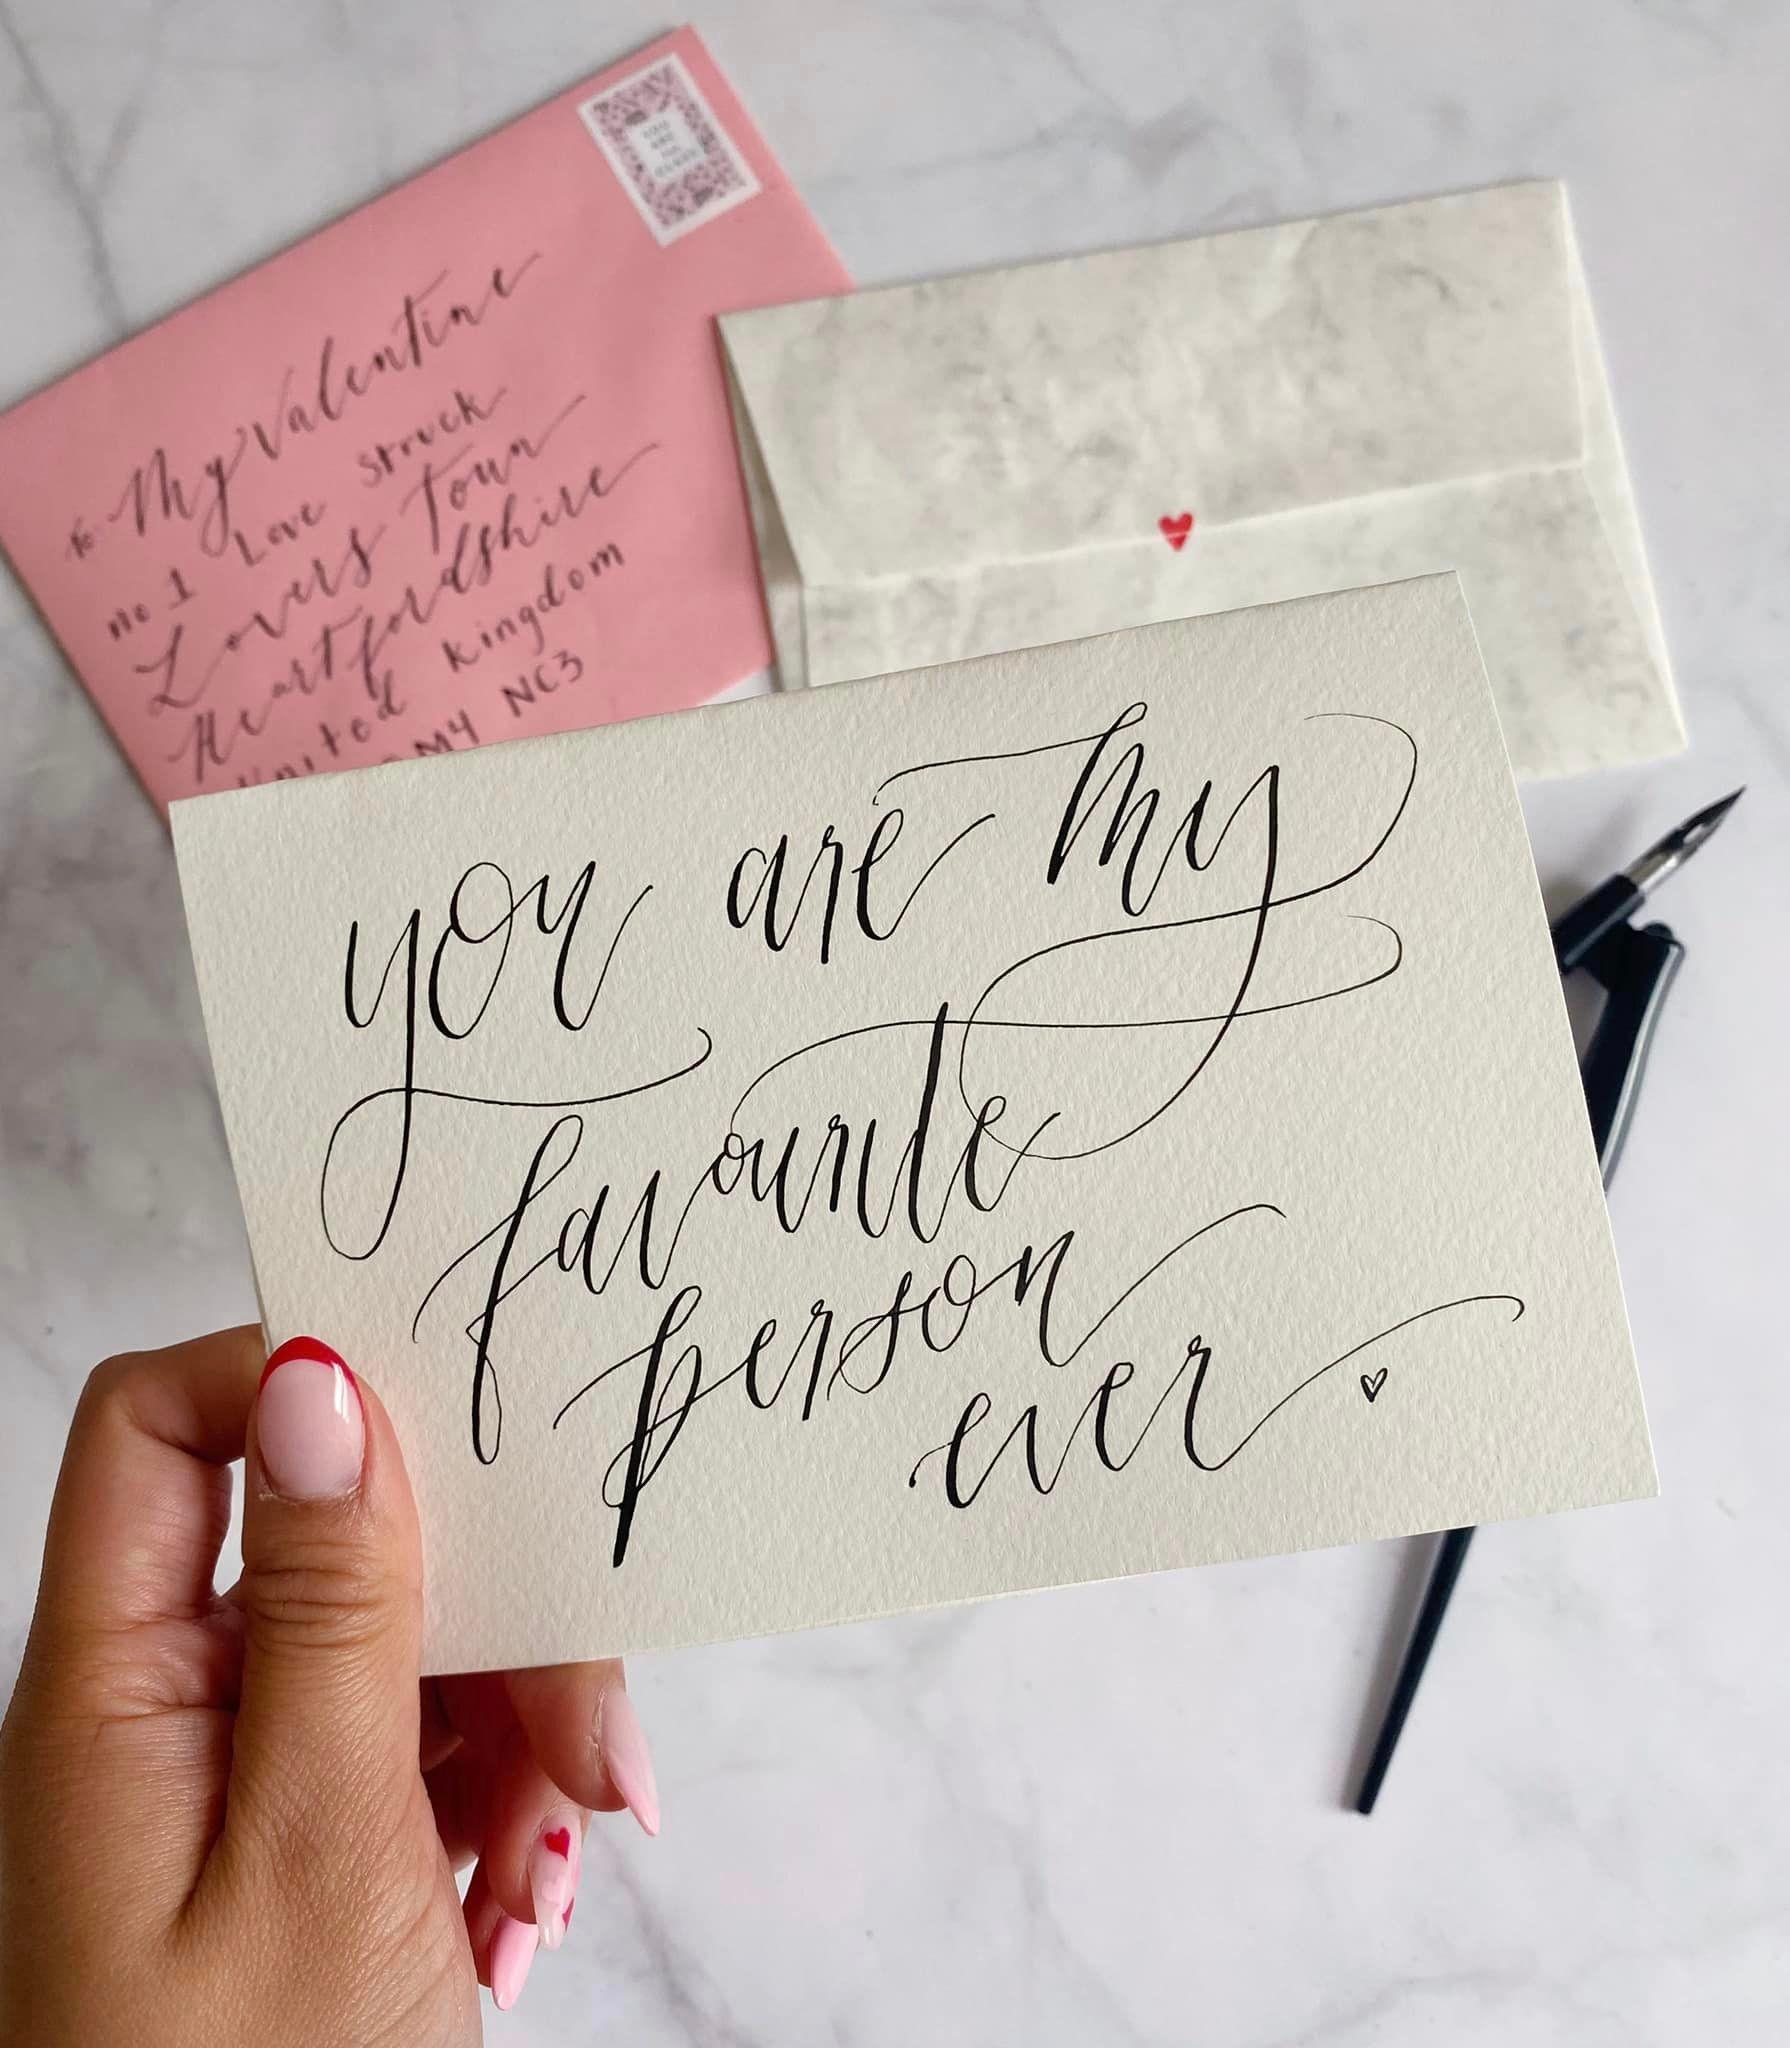 To: My Valentine
no 1 Love Struck
Lovers Town
Heartfordshire
United Kingdom
NC3
you are my
favourite
person
ever